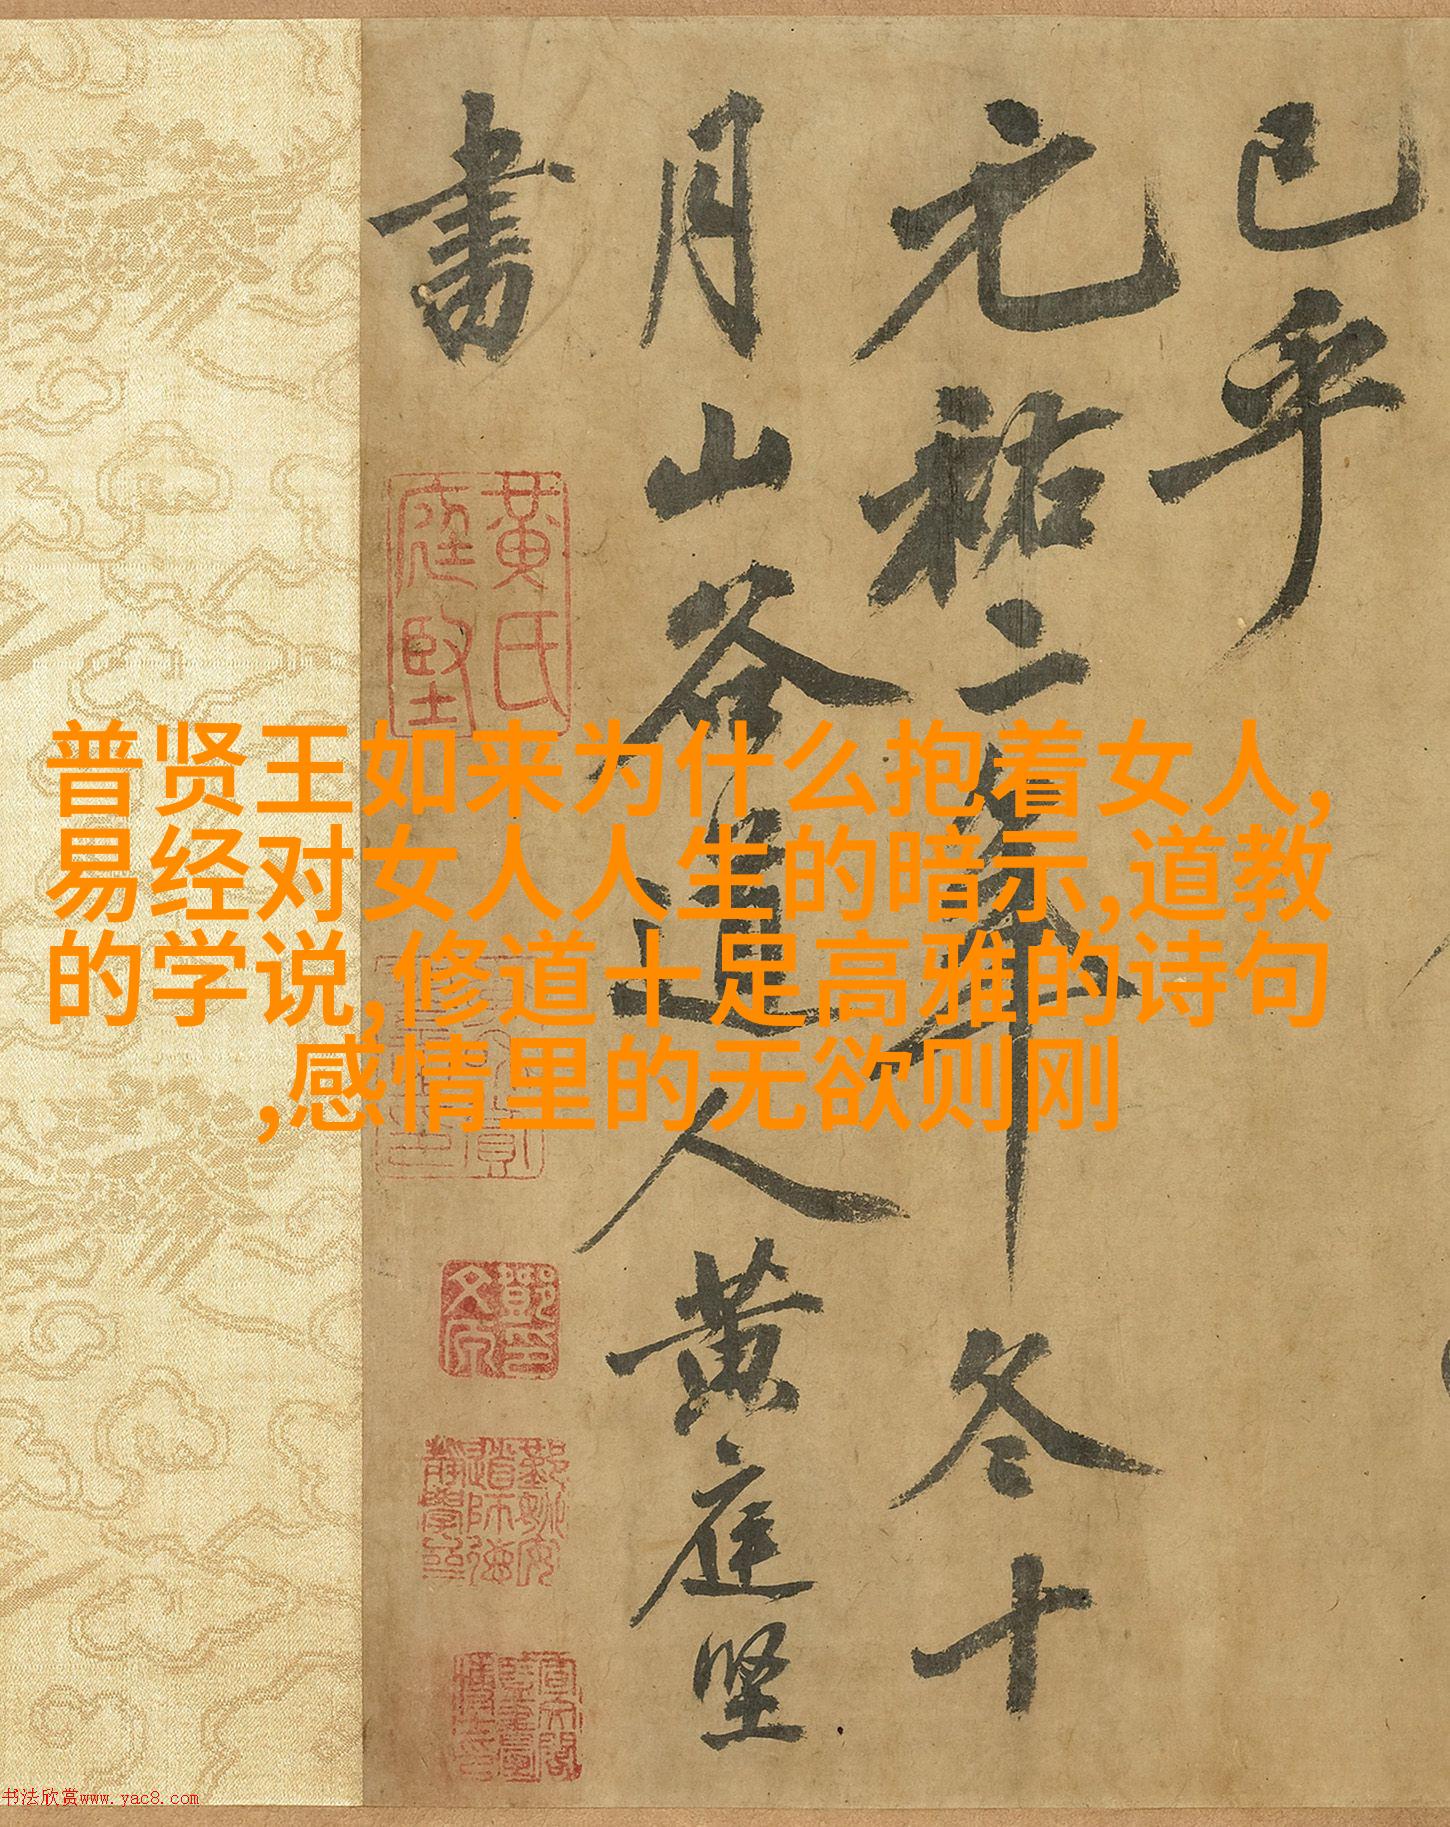 已乎
元祐二年冬十
月山谷道人黄庭坚
書
黄氏
庭堅
普贤王如来为什么抱着女人,
易经对女人人生的暗示,道教
的学说,修道十足高雅的诗句
,感情里的无欲则刚
书法欣赏www.yac8.com